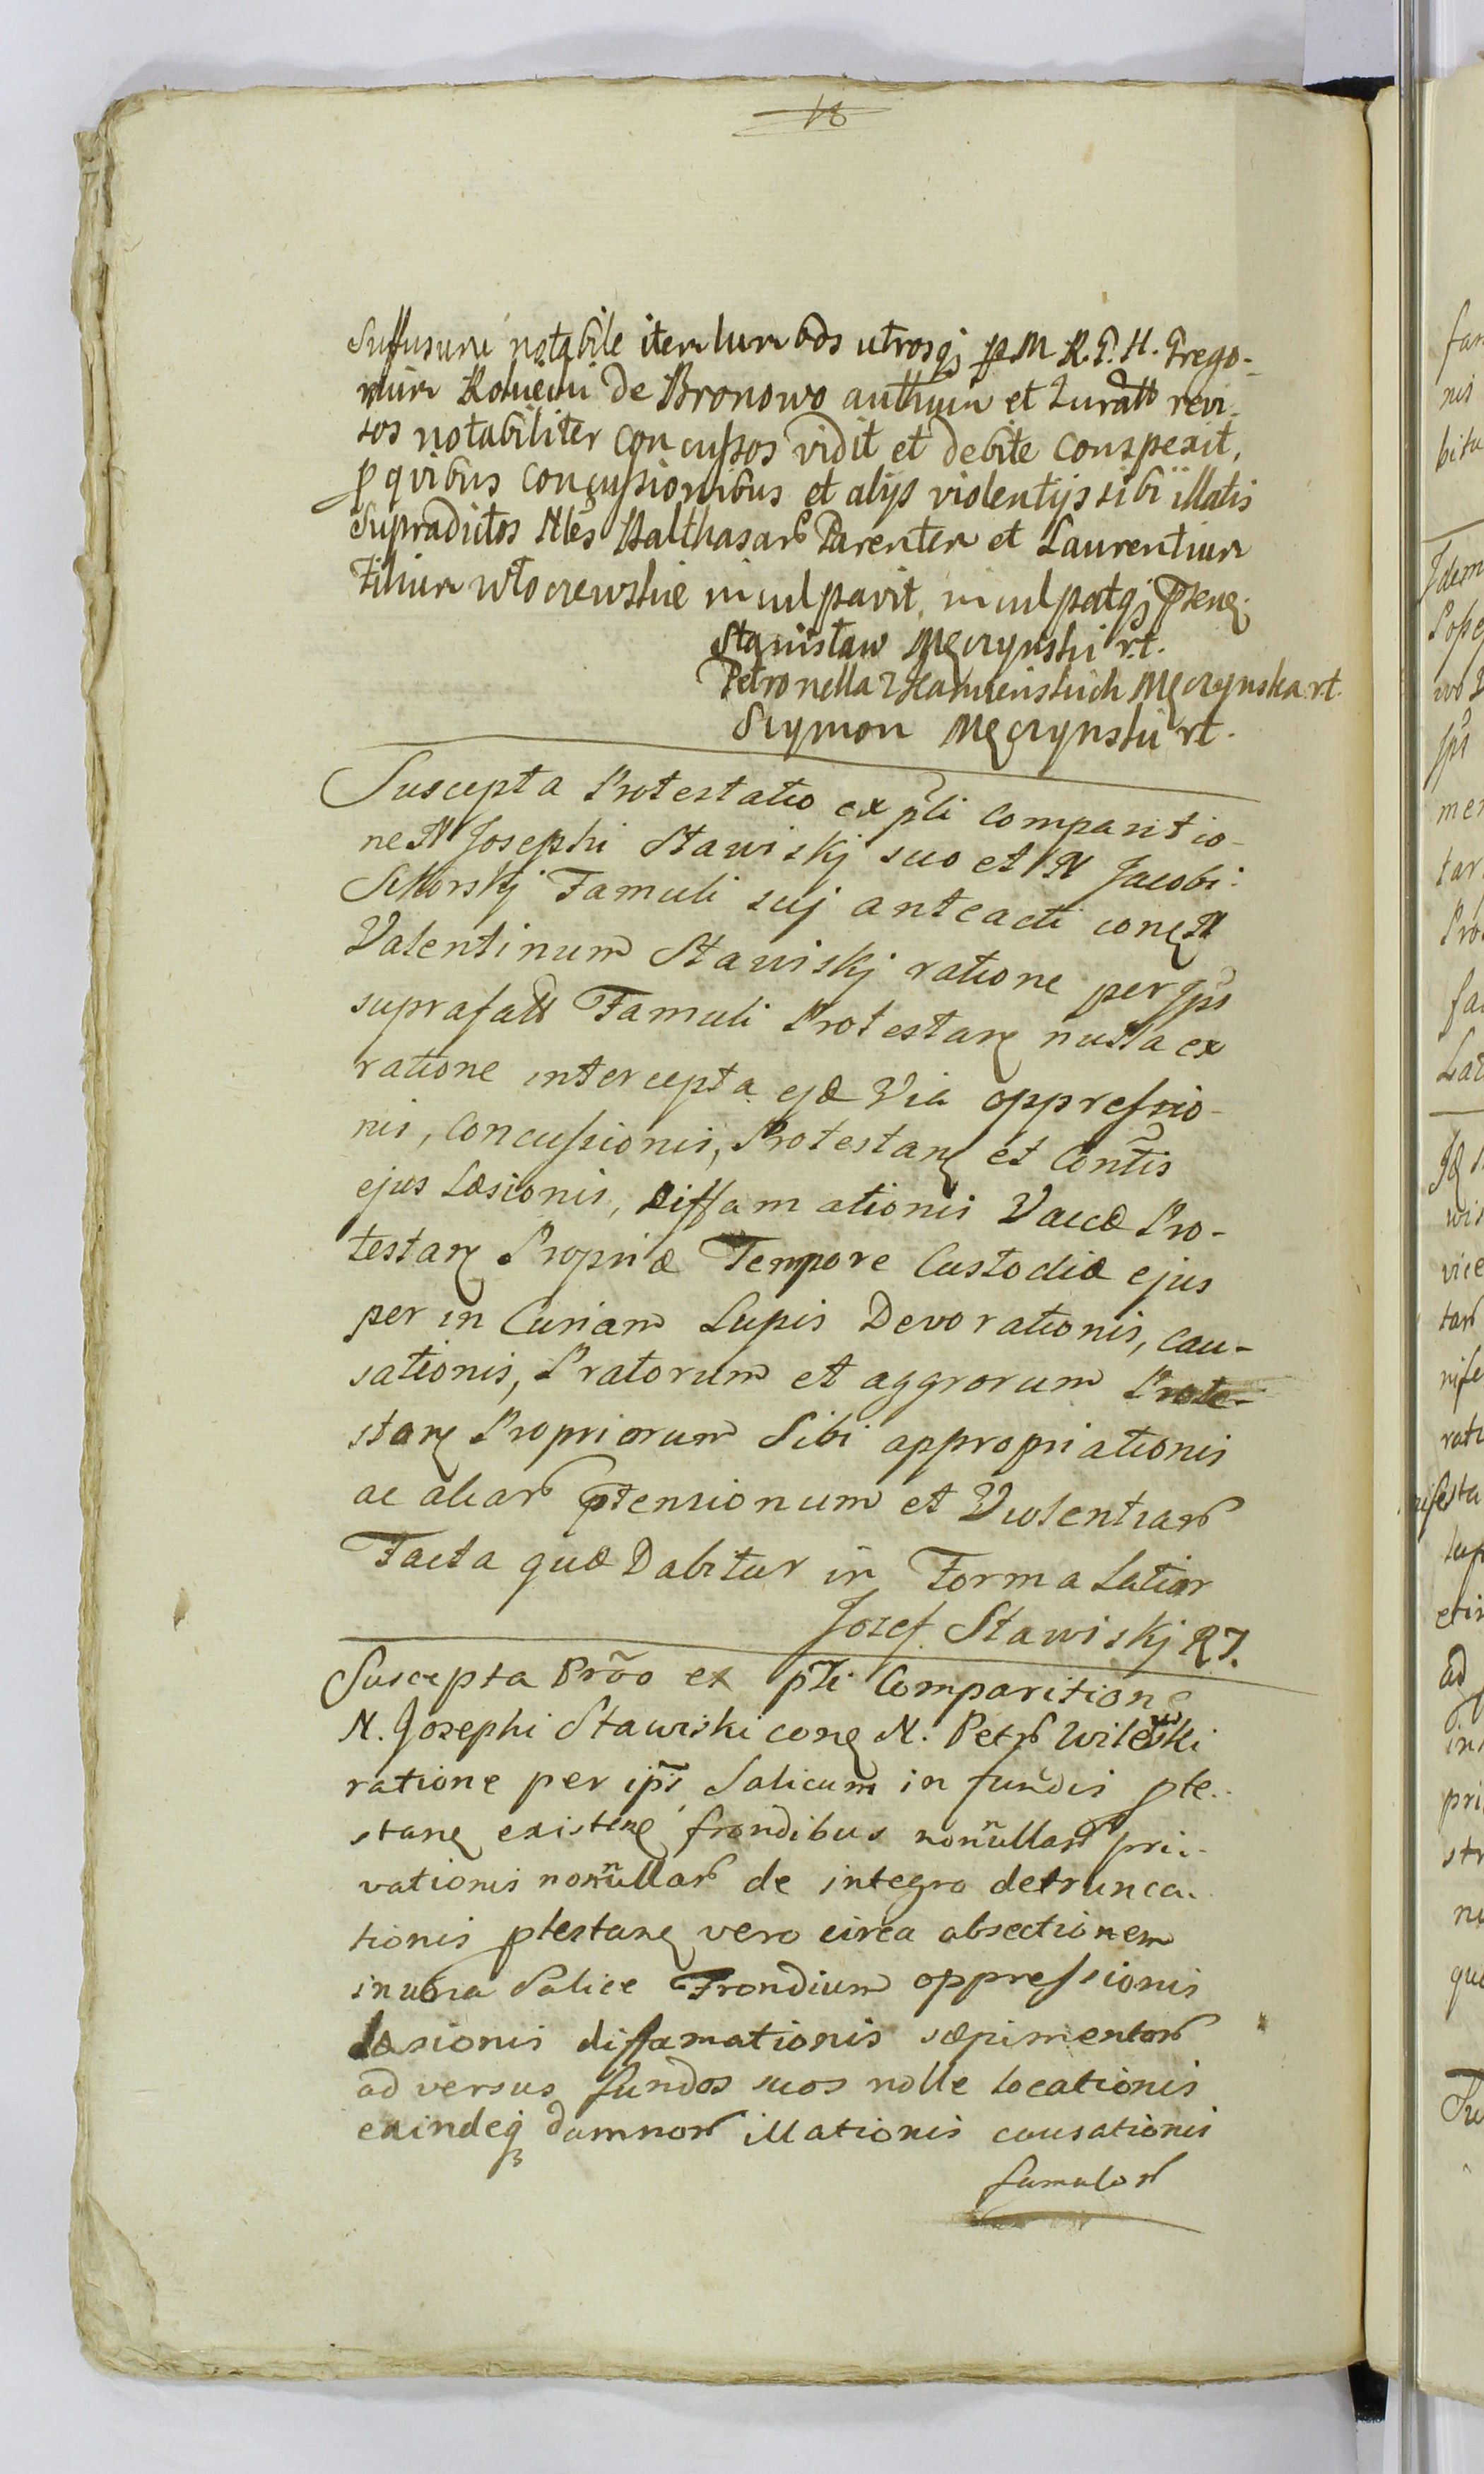 18
Suffusum notabile item lumbos utrosq; p M R. G. H. Grego-
rium de Bronowo authum et Juratt revi-
sos notabiliter concussos vidit et debite conspexit,
p quibus concussionibus et alijs violentijs sibi illatis
Supradictos Nles Balthasar Parentem et Laurentium
Filium inculpavit, inculpatq; Psens.
Stanisław Męczynski rt.
Petronella z Męczynska rt.
Szymon Męczynski rt.
Suscepta Protestatio ex pnli Comparitio-
ne N Josephi Stawiskj suo et N Jacobi
Famuli suj anteacti cong N
Valentinum Stawiskj ratione per Jps
suprafatt Famuli Protestan nulla ex
ratione intercepta eqæ Via oppressio-
nis, Concussionis, Protestan et Contis
ejus Læsionis, Diffamationis Vaccæ Pro-
testan Propriæ Tempore Custodiæ ejus
per in Curiam Lupis Devorationis, Cau-
sationis, Pratorum et aggrorum Prote-
stan Propriorum Sibi appropriationis
ac aliar ptensionum et Violentiar
Facta quæ Dabitur in Forma Latior
Jozef Stawiskj RT.
Suscepta Prõo ex pnli Comparitione
N. Josephi Stawiski cong N. Petr
ratione per ipsi Salicum in fundis pte-
stang existeng frondibus nonnullar pri-
vationis nonnullar de integro detrunca-
tionis ptestang vero circa absectionem
in una Salice Frondium oppressionis
læsionis diffamationis sæpimentor
adversus fundos suos nolle locationis
exindeq; damnor illationis causationis
famulor